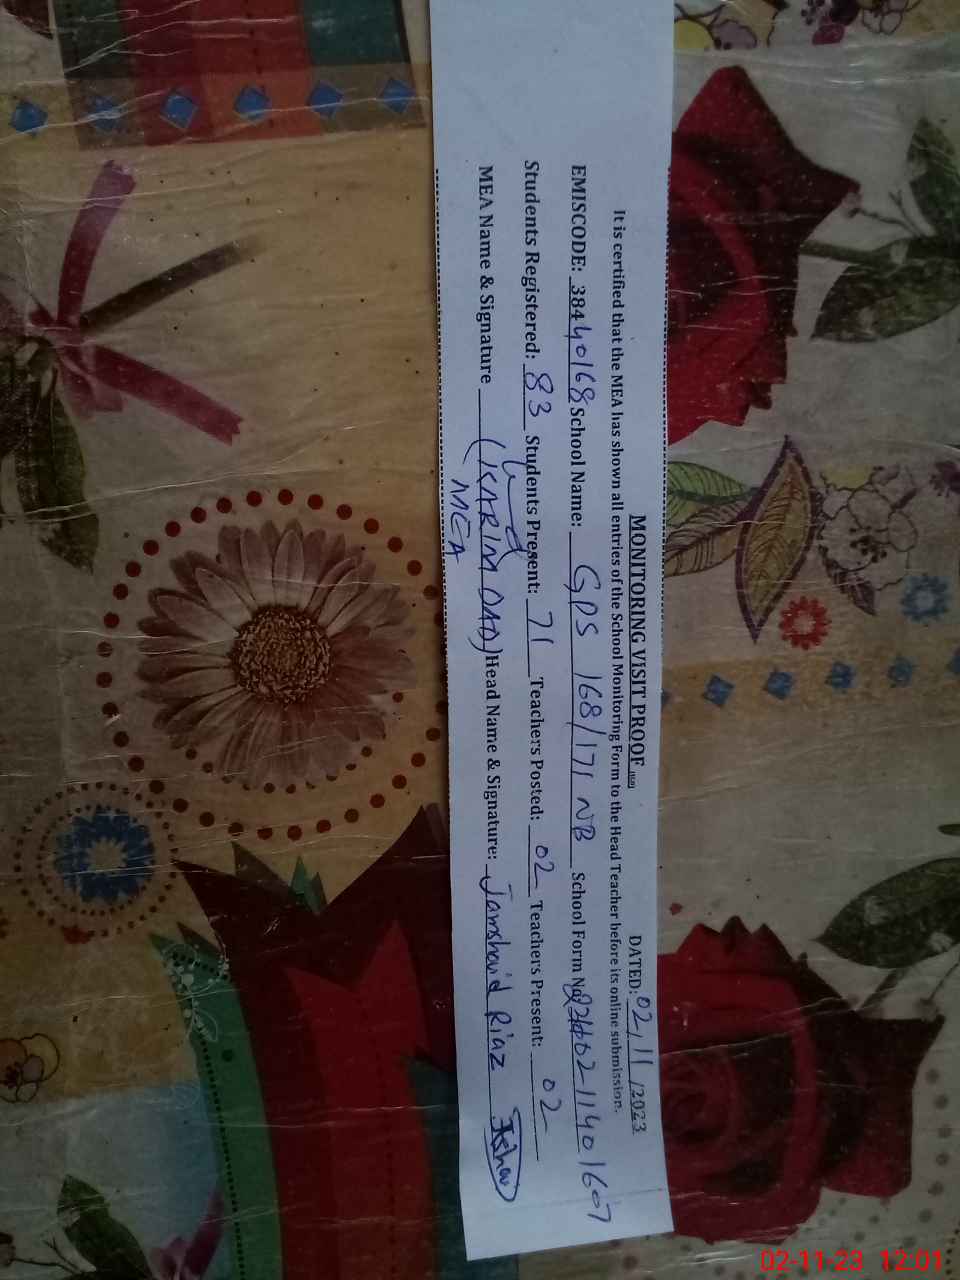 MONITORING VISIT PROOF
DATED: 02/11/2023
It is certified that the MEA has shown all entries of the School Monitoring Form to the Head Teacher before its online submission.
EMISCODE: 38440168 School Name: GPS 168/171 NB School Form No
Students Registered: 83 Students Present: 71 Teachers Posted: 02 Teachers Present: 02
MEA Name & Signature (KARIM DAD) Head Name & Signature: Jamshaid Riaz
MEA
02-11-23 12:01